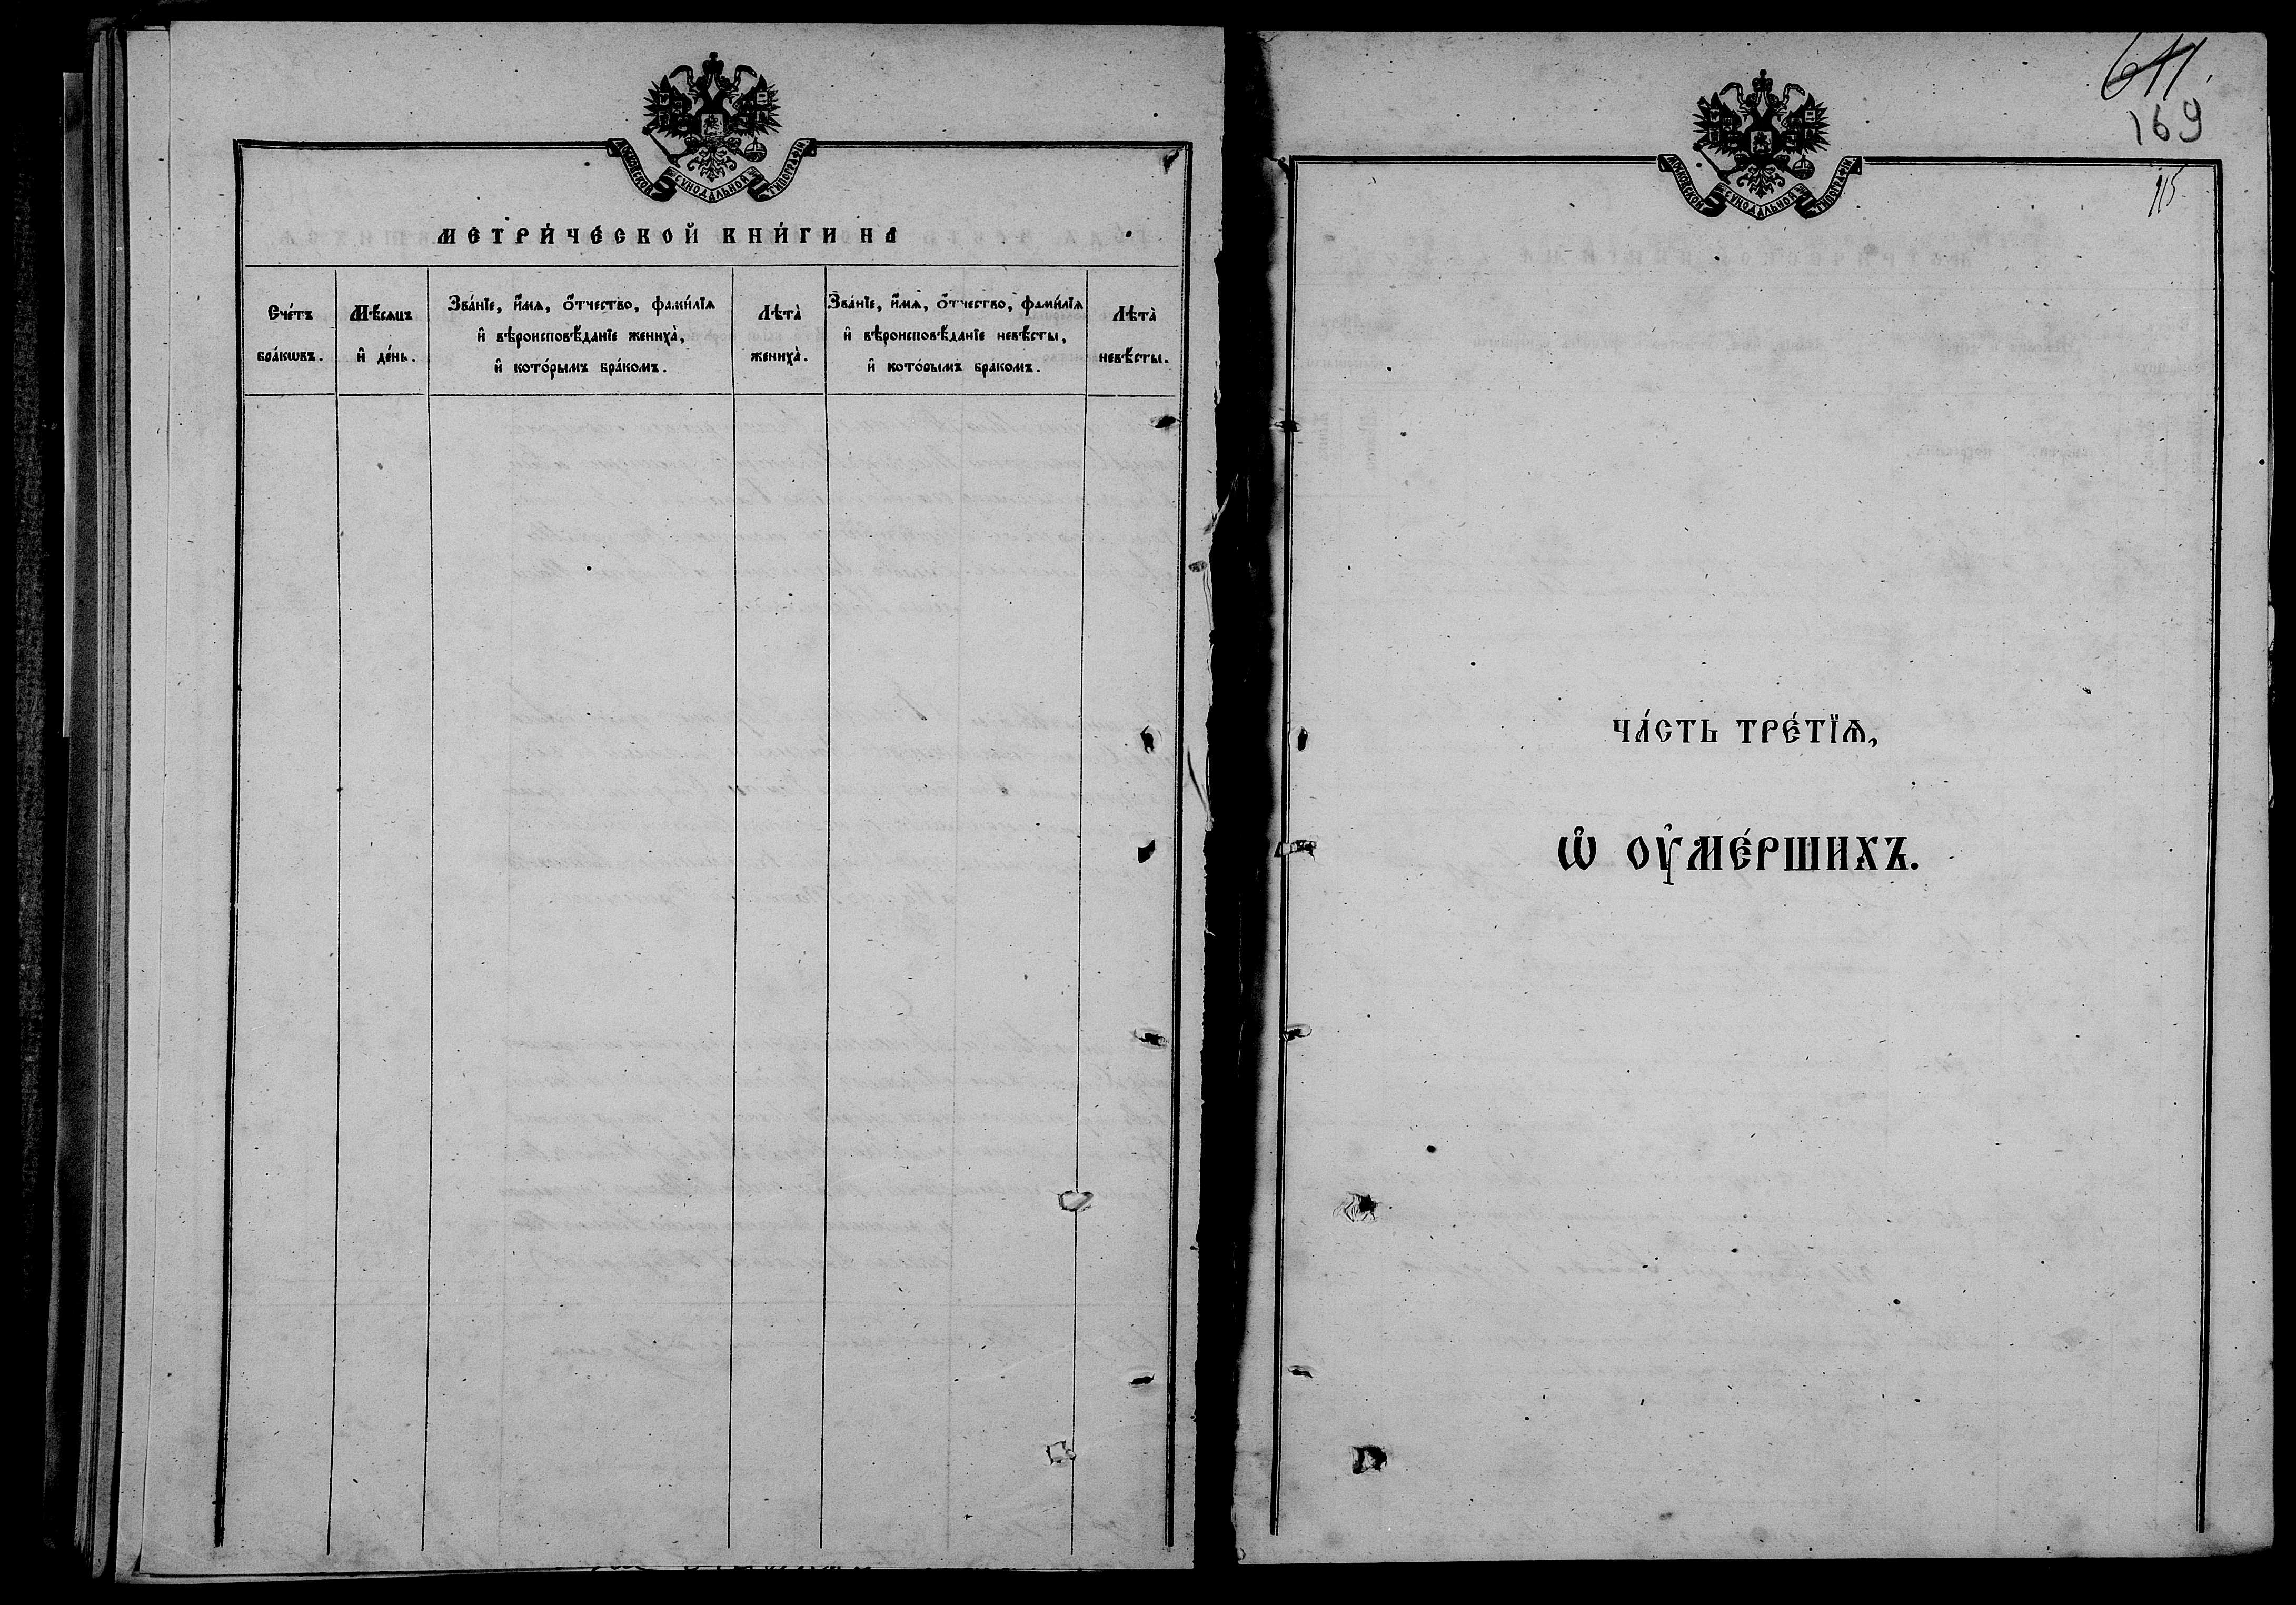 МОСКОВСКОЙ СѴНОДАЛЬНОЙ ТИПОГРАФІИ
МЕТРИ́ЧЕСКОЙ КНИ́ГИ НА
Сче́тъ бра́кѡвъ.
Мѣ́сяцъ и҆ де́нь.
Зва́нїе, и҆́мѧ, ѻ҆́тчество, фами́лїѧ
и҆ вѣроисповѣ́данїе жениха̀,
и҆ кото́рымъ бра́комъ.
Лѣта̀ жениха̀.
Зва́нїе, и҆́мѧ, ѻ҆́тчество, фами́лїѧ
и҆ вѣроисповѣ́данїе невѣ́сты,
и҆ кото́рымъ бра́комъ.
Лѣта̀ невѣ́сты.
169
115
МОСКОВСКОЙ СѴНОДАЛЬНОЙ ТИПОГРАФІИ
ЧА́СТЬ ТРЕ́ТЇѦ,
Ѡ҆ ОУ҆МЕ́РШИХЪ.